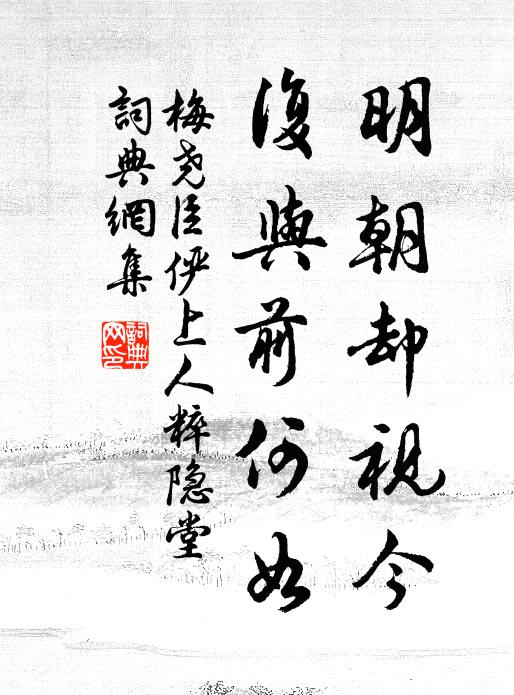 明朝却視今
復與前何如
梅尧臣俨上人粹隐堂
詞典網集
詞典网印